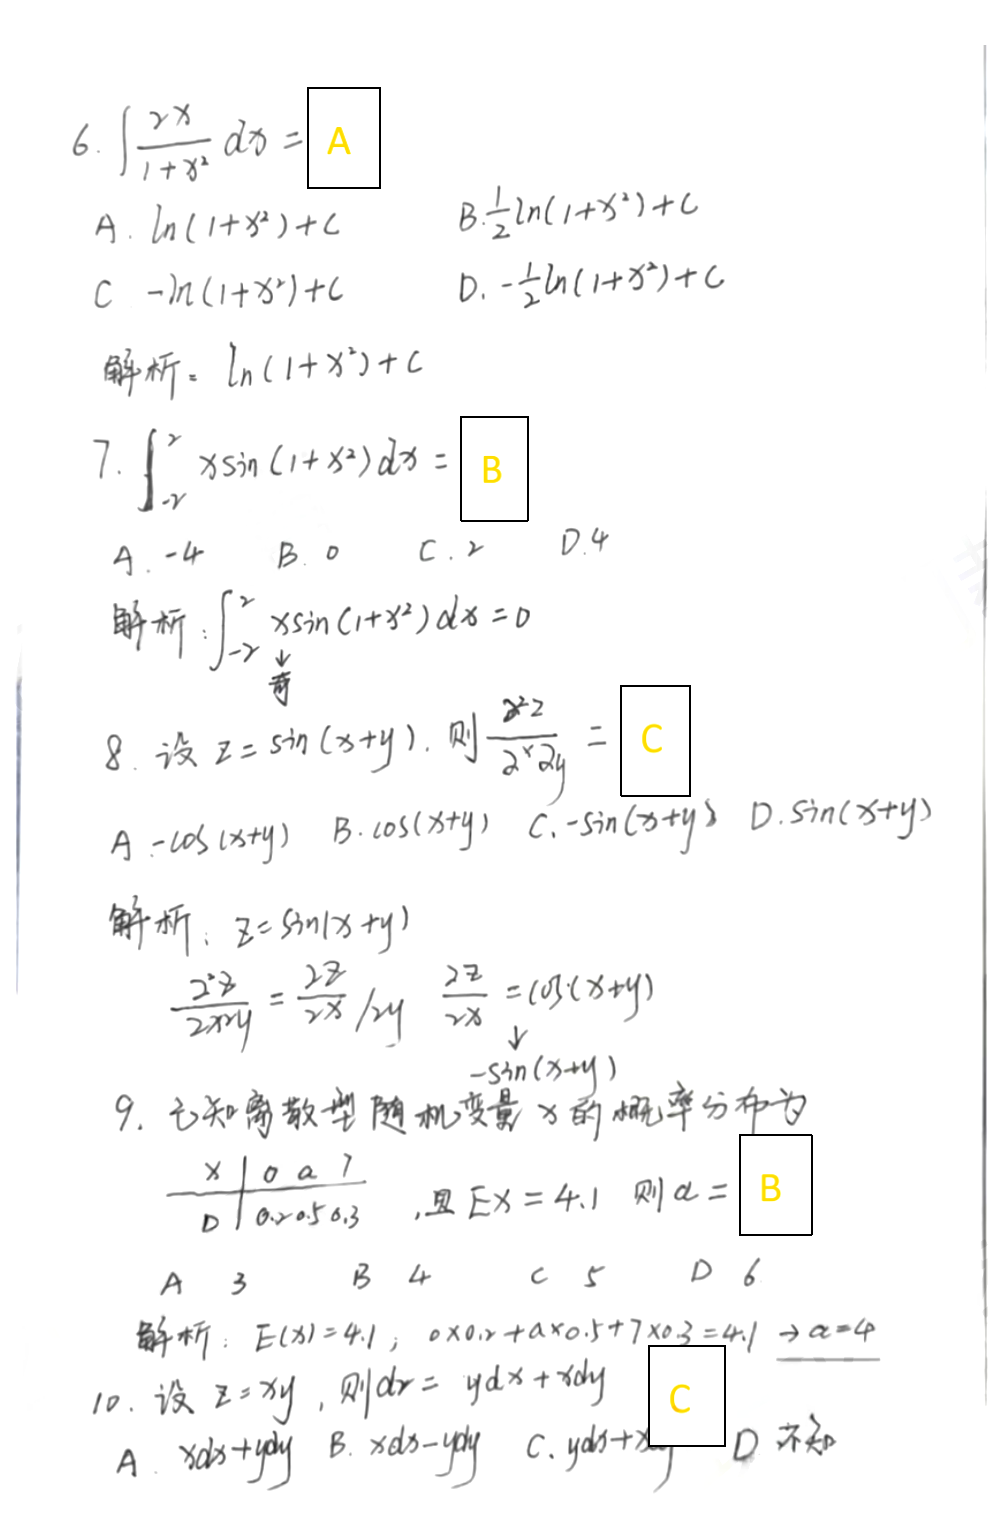 6. ∫ 2x/(1+x²) dx = A
A. ln(1+x²)+C B. ½ln(1+x²)+C
C -ln(1+x²)+C D. -½ln(1+x²)+C
解析: ln(1+x²)+C
7. ∫₋₂² xsin(1+x²)dx = B
A. -4 B. 0 C. 2 D. 4
解析: ∫₋₂² xsin(1+x²)dx=0
↓
奇
8. 设 z=sin(x+y). 则 ∂²z/∂x∂y = C
A -cos(x+y) B. cos(x+y) C. -sin(x+y) D. sin(x+y)
解析: z=sin(x+y)
∂²z/∂x∂y = ∂z/∂x /∂y ∂z/∂x = cos(x+y)
↓
-sin(x+y)
9. 已知离散型随机变量x的概率分布为
x | 0 a 7
D | 0.2 0.5 0.3 , 且 Ex=4.1 则 a= B
A 3 B 4 C 5 D 6
解析: E(x)=4.1; 0×0.2+a×0.5+7×0.3=4.1 → a=4
10. 设 z=xy, 则dz= ydx+xdy C
A. xdx+ydy B. xdx-ydy C. ydx+xdy D 不知